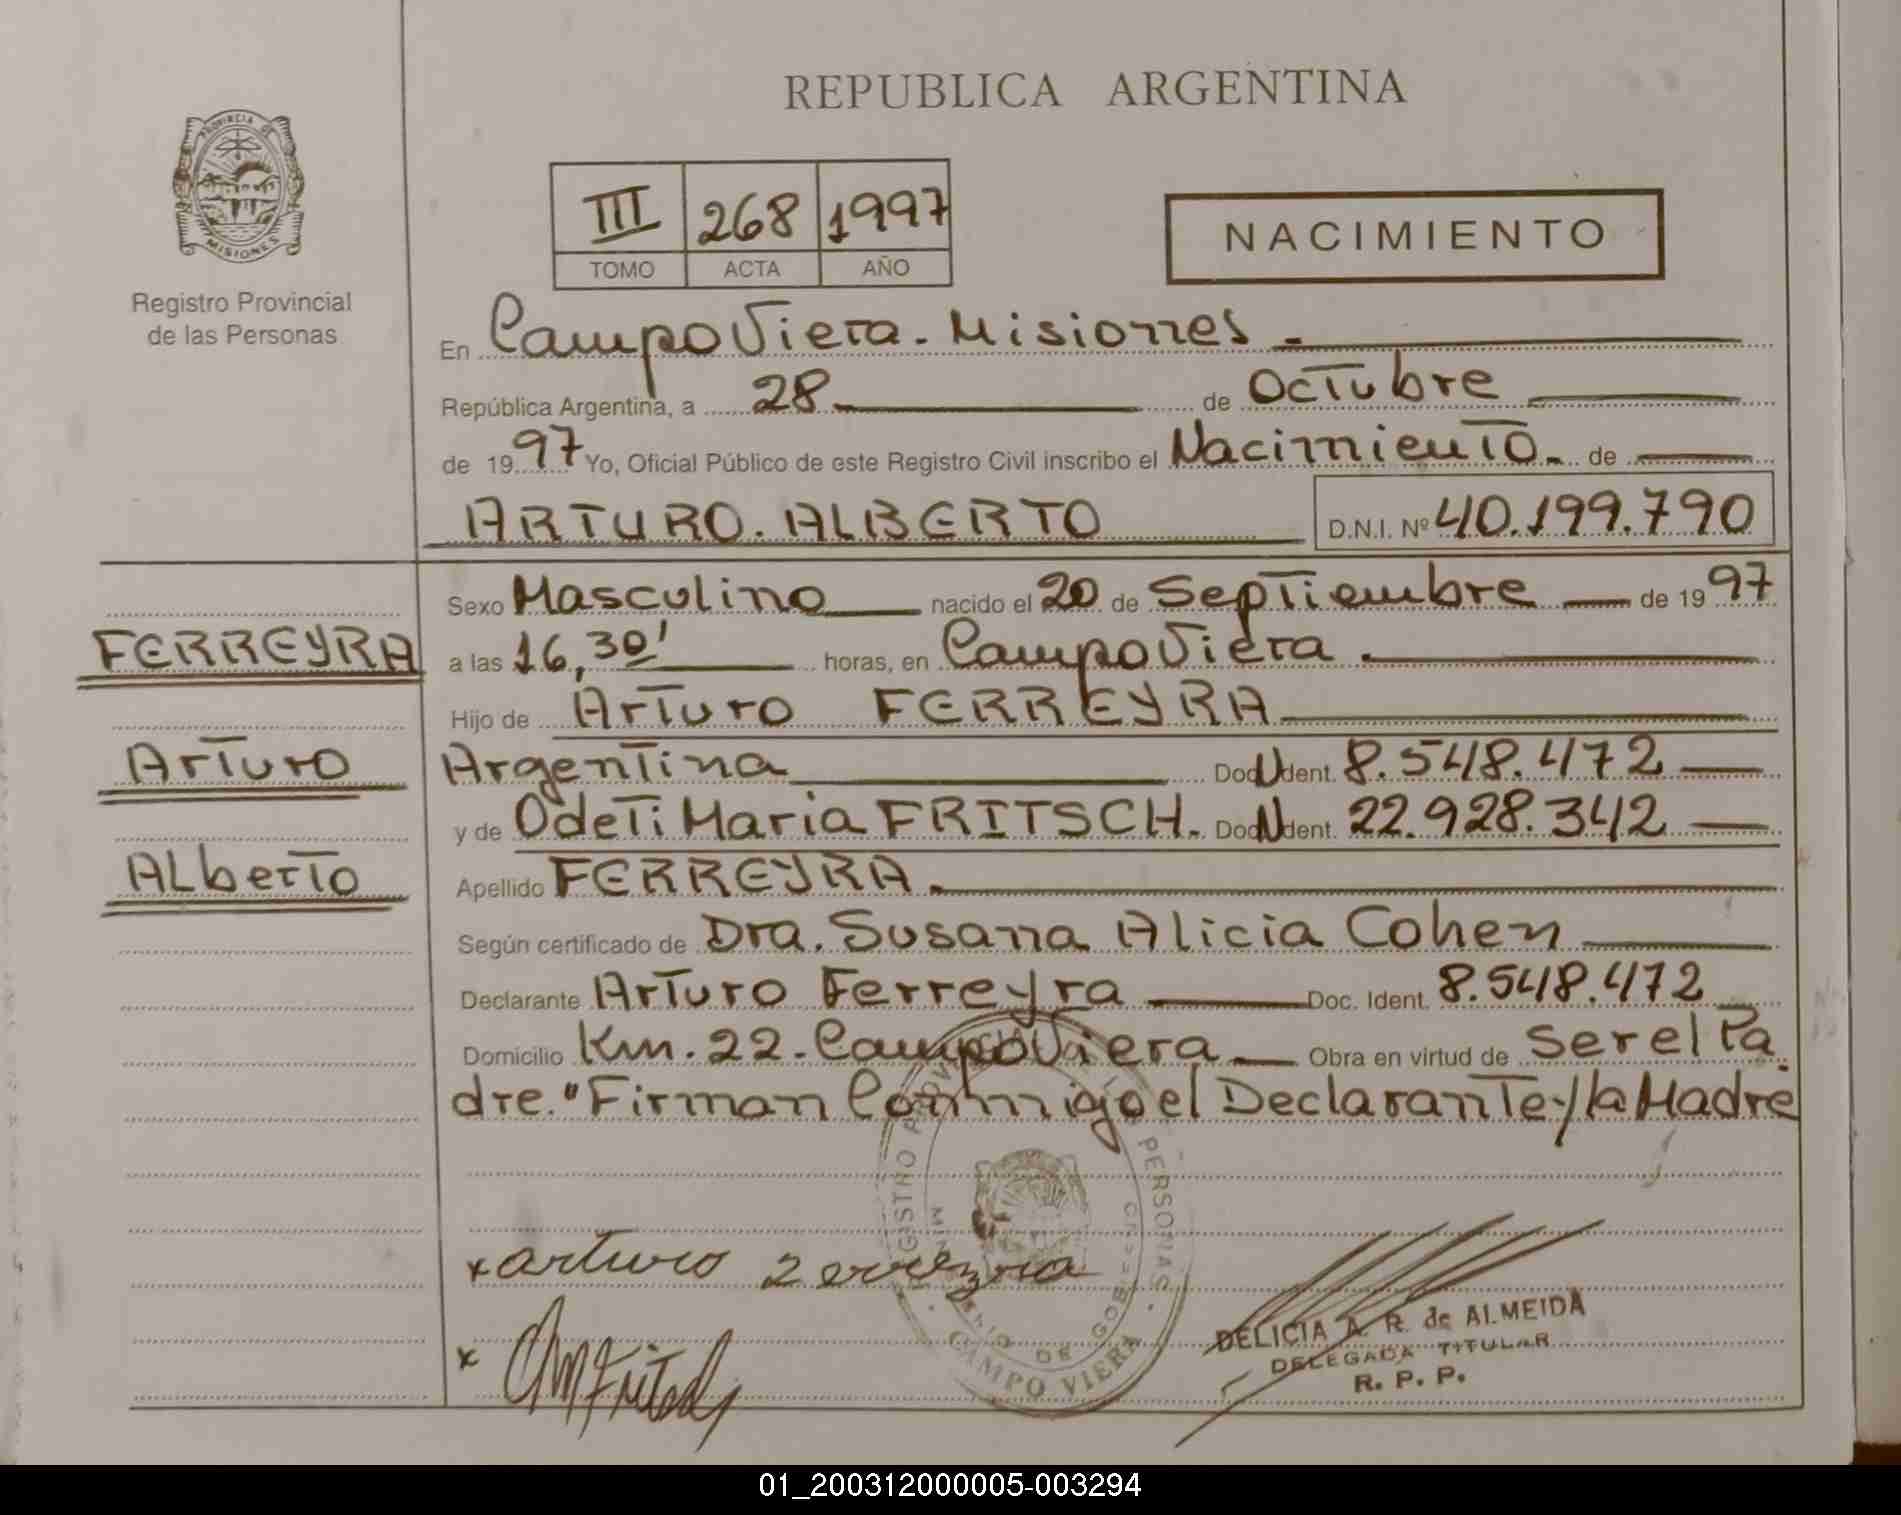 REPUBLICA ARGENTINA
PROVINCIA DE
MISIONES
Registro Provincial
de las Personas
III 268 1997
TOMO ACTA AÑO
NACIMIENTO
En Campo Viera - Misiones.
República Argentina, a 28 de Octubre
de 1997 Yo, Oficial Público de este Registro Civil inscribo el Nacimiento de
ARTURO. ALBERTO D.N.I. Nº 40.199.790
Sexo Masculino nacido el 20 de Septiembre de 1997
FERREYRA
a las 16,30' horas, en Campo Viera.
Hijo de Arturo FERREYRA
Arturo
Argentina Doc. Ident. 8.548.472
y de Odeti Maria FRITSCH. Doc. Ident. 22.928.342
ALberto
Apellido FERREYRA.
Según certificado de Dra. Susana Alicia Cohen
Declarante Arturo Ferreyra Doc. Ident. 8.548.472
Domicilio Km. 22 - Campo Viera Obra en virtud de Ser el Pa
dre. "Firman Conmigo el Declarante y la Madre
REGISTRO PROVINCIAL DE LAS PERSONAS
MINISTERIO DE GOBIERNO
CAMPO VIERA
x arturo Ferreyra
x
DELICIA A. R. de ALMEIDA
DELEGADA TITULAR
R. P. P.
01_200312000005-003294